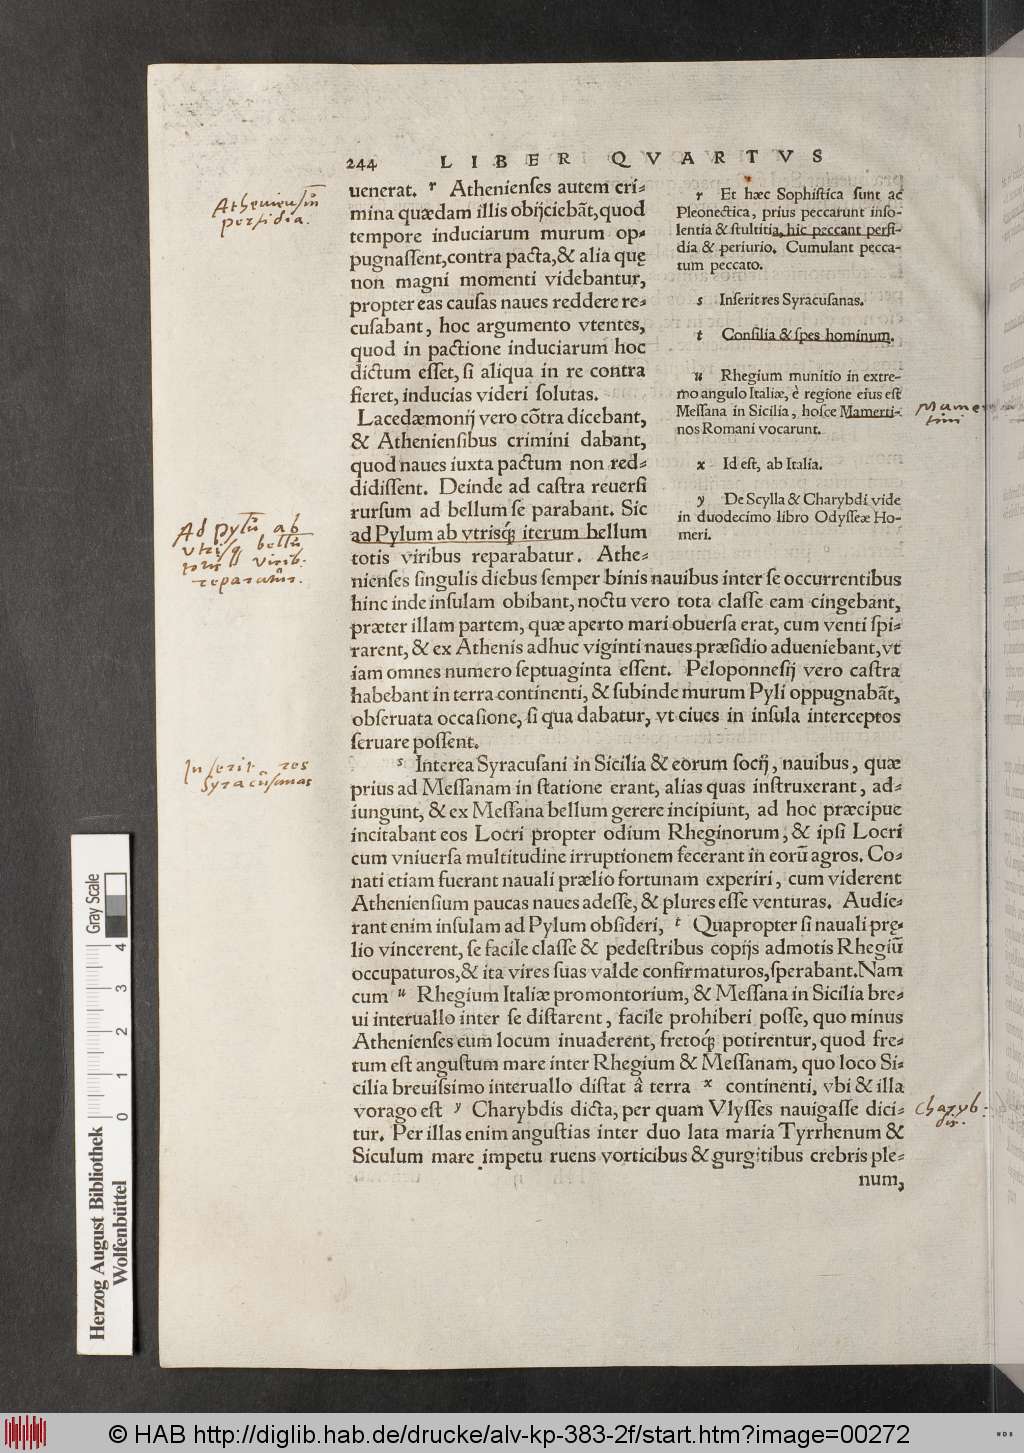 244 LIBER QVARTVS
uenerat. r Athenienſes autem cri-
mina quædam illis obijciebāt, quod
tempore induciarum murum op-
pugnaſſent, contra pacta, & alia quę
non magni momenti videbantur,
propter eas cauſas naues reddere re-
cuſabant, hoc argumento vtentes,
quod in pactione induciarum hoc
dictum eſſet, ſi aliqua in re contra
fieret, inducias videri ſolutas.
Lacedæmonij vero cōtra dicebant,
& Athenienſibus crimini dabant,
quod naues iuxta pactum non red-
didiſſent. Deinde ad caſtra reuerſi
rurſum ad bellum ſe parabant. Sic
ad Pylum ab vtrisq́ iterum bellum
totis viribus reparabatur. Athe-
nienſes ſingulis diebus ſemper binis nauibus inter ſe occurrentibus
hinc inde inſulam obibant, noctu vero tota claſſe eam cingebant,
præter illam partem, quæ aperto mari obuerſa erat, cum venti ſpi-
rarent, & ex Athenis adhuc viginti naues præſidio adueniebant, vt
iam omnes numero ſeptuaginta eſſent. Peloponneſij vero caſtra
habebant in terra continenti, & ſubinde murum Pyli oppugnabāt,
obſeruata occaſione, ſi qua dabatur, vt ciues in inſula interceptos
ſeruare poſſent.
s Interea Syracuſani in Sicilia & eorum ſocij, nauibus, quæ
prius ad Meſſanam in ſtatione erant, alias quas inſtruxerant, ad-
iungunt, & ex Meſſana bellum gerere incipiunt, ad hoc præcipue
incitabant eos Locri propter odium Rheginorum, & ipſi Locri
cum vniuerſa multitudine irruptionem fecerant in eorū agros. Co-
nati etiam fuerant nauali prælio fortunam experiri, cum viderent
Athenienſium paucas naues adeſſe, & plures eſſe venturas. Audie-
rant enim inſulam ad Pylum obſideri, t Quapropter ſi nauali prę-
lio vincerent, ſe facile claſſe & pedeſtribus copijs admotis Rhegiū
occupaturos, & ita vires ſuas valde confirmaturos, ſperabant. Nam
cum u Rhegium Italiæ promontorium, & Meſſana in Sicilia bre-
ui interuallo inter ſe diſtarent, facile prohiberi poſſe, quo minus
Athenienſes eum locum inuaderent, fretoq́ potirentur, quod fre-
tum eſt anguſtum mare inter Rhegium & Meſſanam, quo loco Si-
cilia breuiſsimo interuallo diſtat â terra x continenti, vbi & illa
vorago eſt y Charybdis dicta, per quam Vlyſſes nauigaſſe dici-
tur. Per illas enim anguſtias inter duo lata maria Tyrrhenum &
Siculum mare impetu ruens vorticibus & gurgitibus crebris ple-
num,
r Et hæc Sophiſtica ſunt ac
Pleonectica, prius peccarunt inſo-
lentia & ſtultitia, hic peccant perfi-
dia & periurio. Cumulant pecca-
tum peccato.
s Inſerit res Syracuſanas.
t Conſilia & ſpes hominum.
u Rhegium munitio in extre-
mo angulo Italiæ, è regione eius eſt
Meſſana in Sicilia, hoſce Mamerti-
nos Romani vocarunt.
x Id eſt, ab Italia.
y De Scylla & Charybdi vide
in duodecimo libro Odyſſeæ Ho-
meri.
Atheniensiū
perfidia.
Ad pylū ab
vtrisq bellū
totis virib.
reparatur.
Inserit res
Syracusanas
Mamer
tini
Charyb-
dis.
Gray Scale
4
3
2
1
0
Herzog August Bibliothek
Wolfenbüttel
© HAB http://diglib.hab.de/drucke/alv-kp-383-2f/start.htm?image=00272